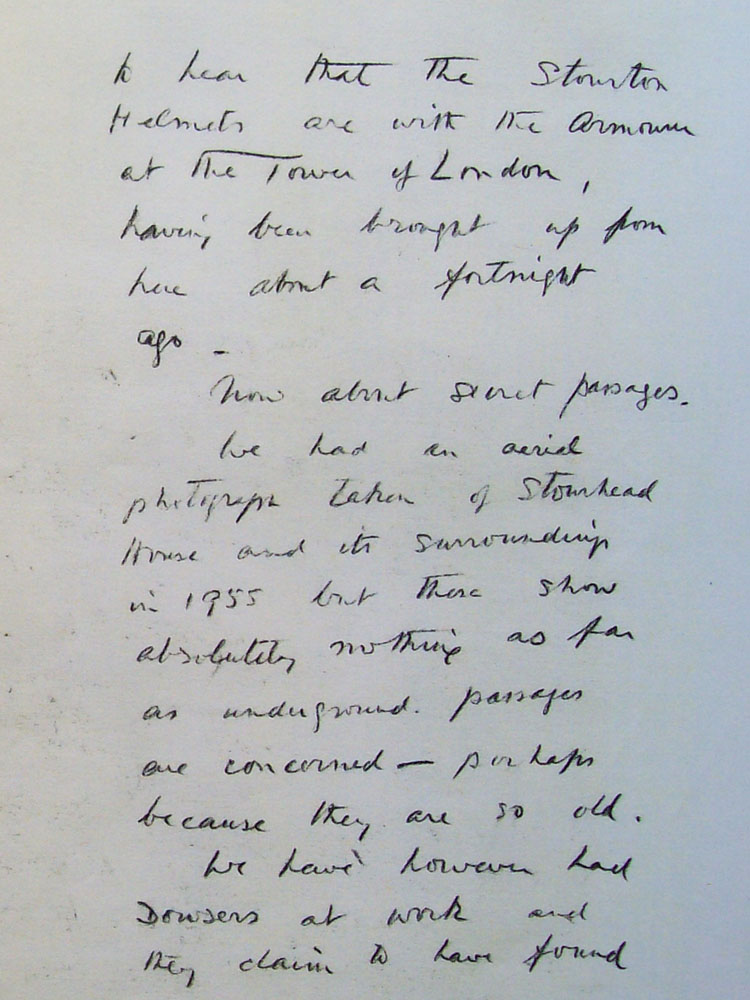 to hear that the Stourton
Helmets are with the Armourer
at the Tower of London,
having been brought up from
here about a fortnight
ago -
Now about secret passages.
We had an aerial
photograph taken of Stourhead
House and its surroundings
in 1955 but these show
absolutely nothing as far
as underground passages
are concerned — perhaps
because they are so old.
We have however had
Dowsers at work and
they claim to have found